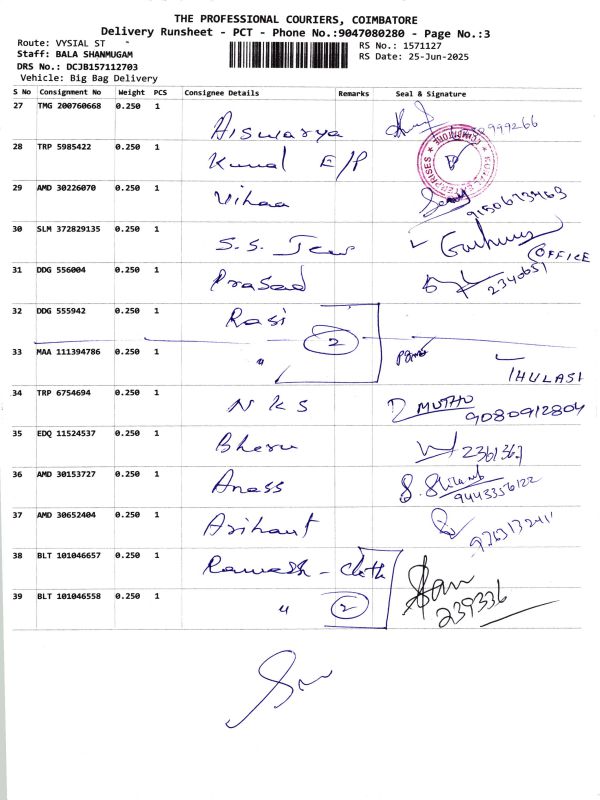 THE PROFESSIONAL COURIERS, COIMBATORE
Delivery Runsheet - PCT - Phone No.:9047080280 - Page No.:3
Route: VYSIAL ST
RS No.: 1571127
Staff: BALA SHANMUGAM
RS Date: 25-Jun-2025
DRS No.: DCJB157112703
Vehicle: Big Bag Delivery
S No Consignment No Weight PCS Consignee Details Remarks Seal & Signature
27 TMG 200760668 0.250 1 Aiswarya
28 TRP 5985422 0.250 1 Kunal E/P
29 AMD 30226070 0.250 1 Vihaa
30 SLM 372829135 0.250 1 S.S.
OFFICE
31 DDG 556004 0.250 1 Prasad 2340651
32 DDG 555942 0.250 1 Rasi
2
33 MAA 111394786 0.250 1 "
THULASI
34 TRP 6754694 0.250 1 N K S MUTHU
9080912804
35 EDQ 11524537 0.250 1 Bheru 2361367
36 AMD 30153727 0.250 1 Anass
9443356122
37 AMD 30652404 0.250 1 Arihant
38 BLT 101046657 0.250 1 Ramesh - Cloth
39 BLT 101046558 0.250 1 " 2 239336